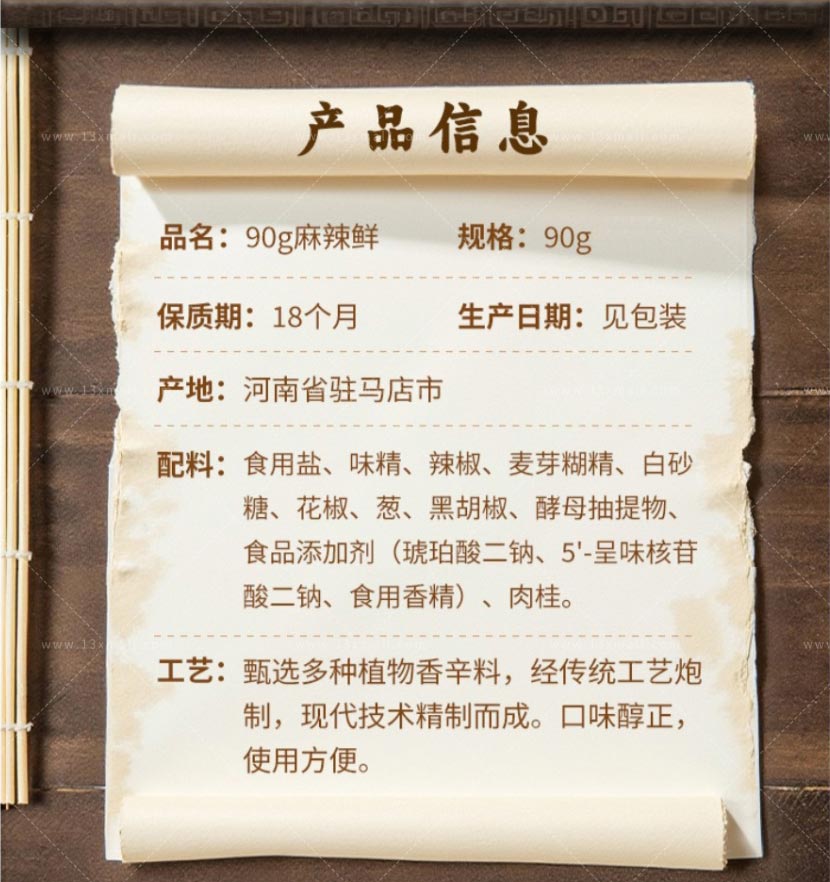 产品信息
品名：90g麻辣鲜 规格：90g
保质期：18个月 生产日期：见包装
产地：河南省驻马店市
配料：食用盐、味精、辣椒、麦芽糊精、白砂
糖、花椒、葱、黑胡椒、酵母抽提物、
食品添加剂（琥珀酸二钠、5'-呈味核苷
酸二钠、食用香精）、肉桂。
工艺：甄选多种植物香辛料，经传统工艺炮
制，现代技术精制而成。口味醇正，
使用方便。